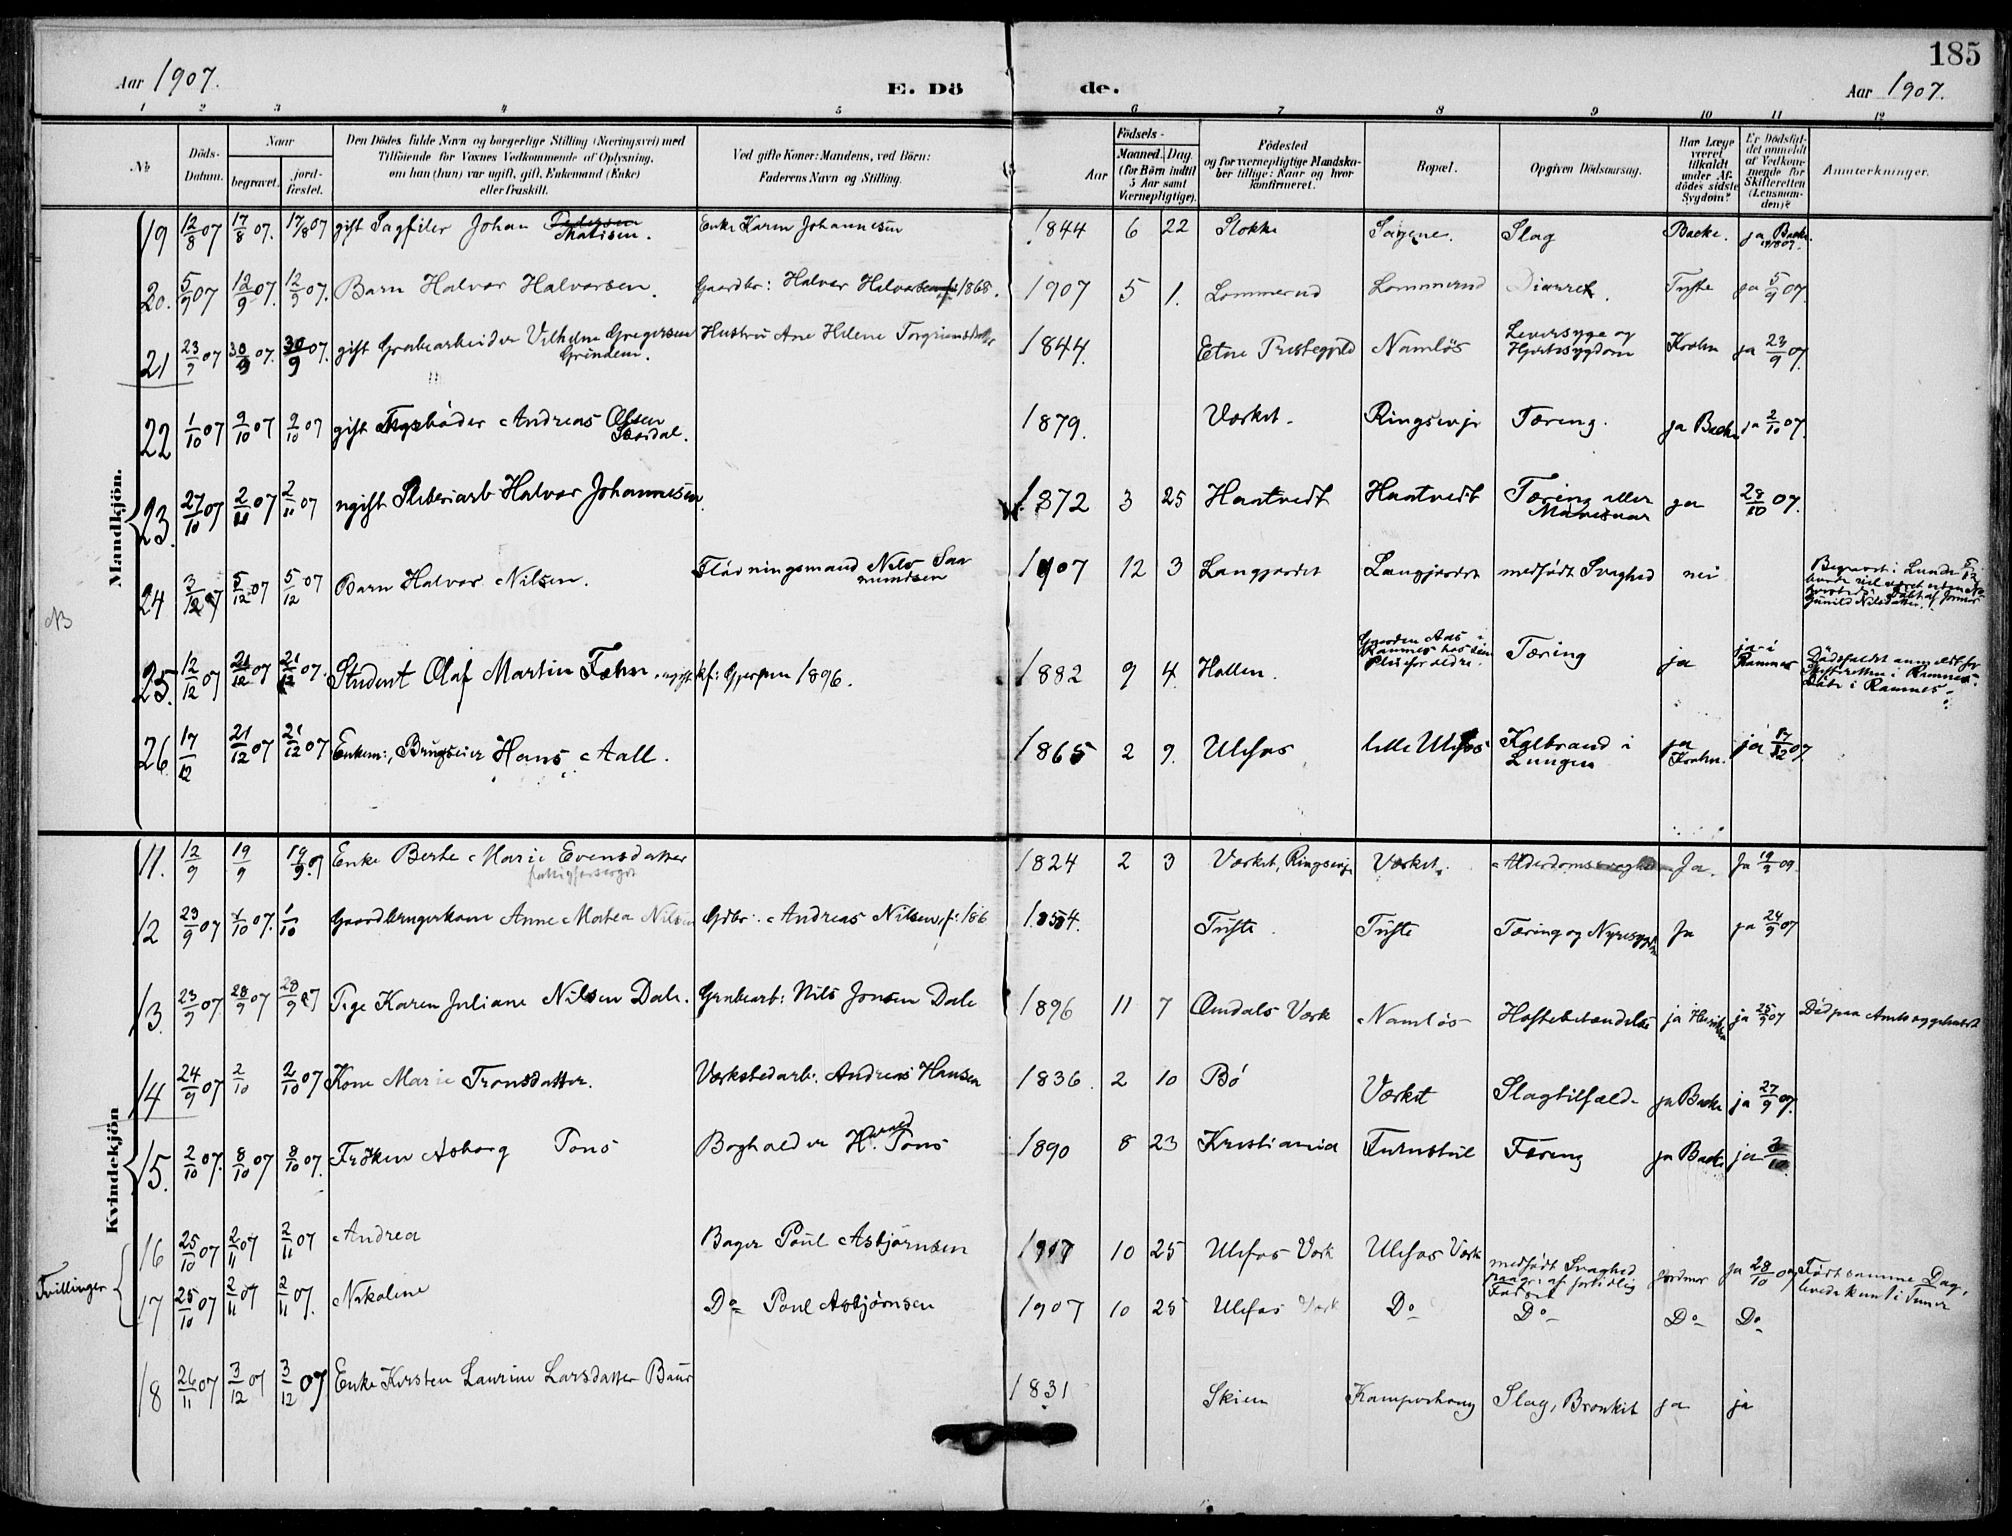 185
Aar 1907.
E. Dö
de.
Aar 1907.
1 2 3 4 5 6 7 8 9 10 11 12
No
Döds-
Datum.
Naar
begravet.
jord-
fæstet.
Den Dödes fulde Navn og borgerlige Stilling (Næringsvei) med
Tilföiende for Voxnes Vedkommende af Oplysning,
om han (hun) var ugift, gift, Enkemand (Enke)
eller fraskilt.
Ved gifte Koner: Mandens, ved Börn:
Faderens Navn og Stilling.
Födsels-
Aar
Maaned.
Dag
(for Börn indtil
5 Aar samt
Værnepligtige).
Födested
og for værnepligtige Mandska-
ber tillige: Naar og hvor
konfirmeret.
Bopæl.
Opgiven Dödsaarsag.
Har Læge
været
tilkaldt
under Af-
dödes sidste
Sygdom?
Er Dödsfal-
det anmeldt
af Vedkom-
mende for
Skifteretten
(Lensman-
den)?
Anmærkninger.
Mandkjön.
19 12/8 07 17/8 07. 17/8 07 gift Sagfiler Johan Pedersen Enke Karen Johannesen 1844 6 22 Stokke Sagene. Slag Backe. ja Backe.
20. 5/9 07 12/9 07. 12/9 07. Barn Halvor Halvorsen. Gaardbr: Halvor Halvorsen f: 1868. 1907 5 1. Lommerud Lommerud Diarret. Tufte ja 5/9 07.
21 23/9 07 30/9 07. 30/9 07. gift Grubearbeider Vilhelm Gregersen Hustru Ane Helene 1844. Etne Præstegjeld Namløs Leversyge og Krohn ja 23/9 07.
Grinden.
Hjertesygdom
22 1/10 07 9/10 07 9/10 07 gift Andreas Olsen 1879. Værket. Ringsevje Tæring. ja Backe ja 2/10 07.
23. 27/10 07 2/11 07 2/11 07 ugift Sliberiarb Halvor Johannesen 1872 3 25 Haatvedt Haatvedt Tæring eller ja 28/10 07.
24 3/12 07 5/12 07 5/12 07 Barn Halvor Nilsen. Flødningsmand Nils Saa 1907 12 3 Langjordet Langjordet medfødt Svaghed nei Begravet i Lunde
mundsen
Gunild Nilsdatter.
NB
25. 12/12 07 21/12 07 21/12 07. Student Olaf Martin Fæhn. ugift kf: Gjerpen 1896. 1882 9 4. Hollen. Gaarden Aas i Tæring ja ja i
Ramnes hos sin
Pleieforældre.
Ramnes
Dødsfaldet anmeldt for
Skifteretten i Ramnes.
Døde i Ramnes.
26 17/12 21/12 07 21/12 07 Enkem:, Brugseier Hans Aall. 1865 2 9. Ulefos lille Ulefos Kolbrand i ja ja 17/12 07.
Lungen
Krohn.
Kvindekjön
11. 12/9 19/9 19/9 07 Enke Berte Marie Evensdatter 1824 2 3 Værket, Ringsevje Værket. Alderdomssvaghed Ja. Ja 19/9 09.
fattigforsørget
12 23/9 07 1/10 07. 1/10 Gaardbrugerkone Anne Matea Nilsen Gdbr. Andreas Nilsen, f: 186 1854. Tufte. Tufte Tæring og Nyresygdom Ja ja 24/9 07
13. 23/9 07 28/9 07 28/9 07 Pige Karen Juliane Nilsen Dale. Grubearb: Nils Jonsen Dale 1896 11 7 Omdals Værk Namløs ja ja 25/9 07 Död paa Amtssygehuset
14 24/9 07 2/10 2/10 07 Kone Marie Tronsdatter. Værkstedarb: Andreas Hansen 1836. 2 10 Bø Værket Slagtilfælde ja Backe ja 27/9 07.
15. 2/10 07. 8/10 07 8/10 07. Frøken Asborg Tons Bogholder Harald Tons 1890 8 23 Kristiania Turnstul Tæring ja Backe ja 2/10
Tvillinger
16 25/10 07 2/11 07 2/11 07 Andrea Bager Poul Asbjørnsen 1907 10 25 Ulefos Værk Ulefos Værk medfødt Svaghed Jordmor ja 28/10 07 Født samme Dag,
paagr: af fortidlig
Fødsel
levede kun i Timer
17 25/10 07 2/11 07 2/11 07. Nikoline Do Poul Asbjørnsen 1907 10 25 Ulefos Værk Do Do Do Do
18 26/11 07 3/12 07 3/12 07 Enke Kirsten Laurine Larsdatter Baur 1831 Skien Kamperhaug Slag, Bronkit ja ja